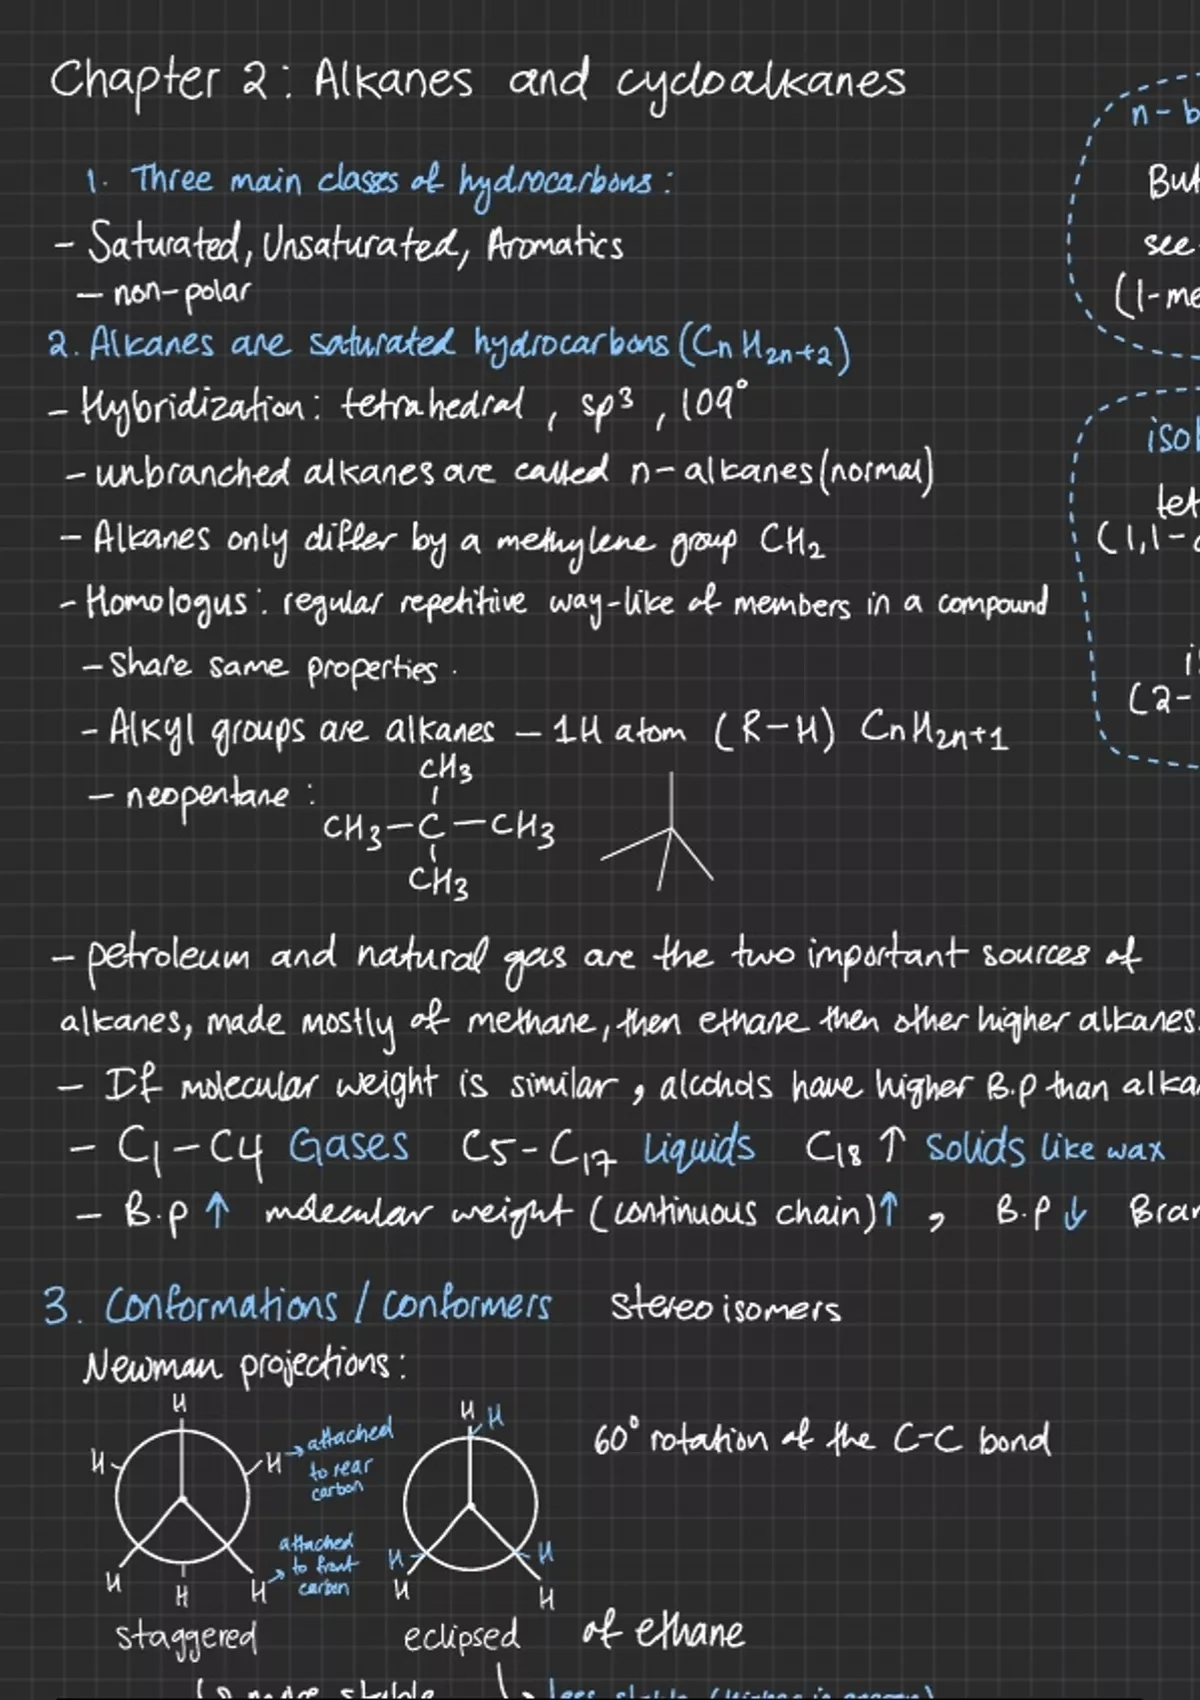 Chapter 2: Alkanes and cycloalkanes
1. Three main classes of hydrocarbons:
- Saturated, Unsaturated, Aromatics
- non-polar
2. Alkanes are saturated hydrocarbons (CnH2n+2)
- Hybridization: tetrahedral, sp3, 109°
- unbranched alkanes are called n-alkanes (normal)
- Alkanes only differ by a methylene group CH2
- Homologus: regular repetitive way-like of members in a compound
- Share same properties.
- Alkyl groups are alkanes - 1H atom (R-H) CnH2n+1
- neopentane:
CH3
CH3-C-CH3
CH3
- petroleum and natural gas are the two important sources of
alkanes, made mostly of methane, then ethane then other higher alkanes.
- If molecular weight is similar, alcohols have higher B.p than alka
- C1-C4 Gases C5-C17 Liquids C18 ↑ Solids like wax
- B.p ↑ molecular weight (continuous chain)↑, B.p ↓ Bran
n-b
But
see
(1-me
isob
tet
(1,1-
(2-
3. Conformations / conformers Stereoisomers
Newman projections:
H
H
H → attached
to rear
carbon
attached
to front
carbon
H
H
H
staggered
H H
H H
H H
eclipsed
60° rotation of the C-C bond
of ethane
more stable
less stable (higher in energy)